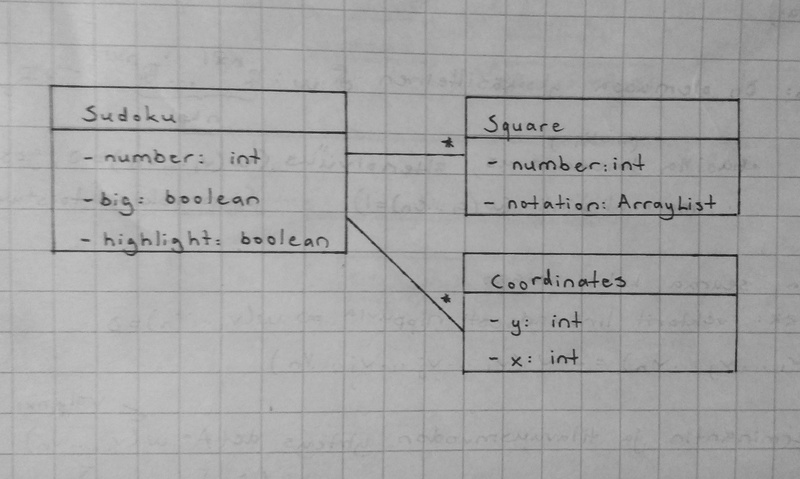 Sudoku
- number: int
- big: boolean
- highlight: boolean
*
Square
- number: int
- notation: ArrayList
*
Coordinates
- y: int
- x: int